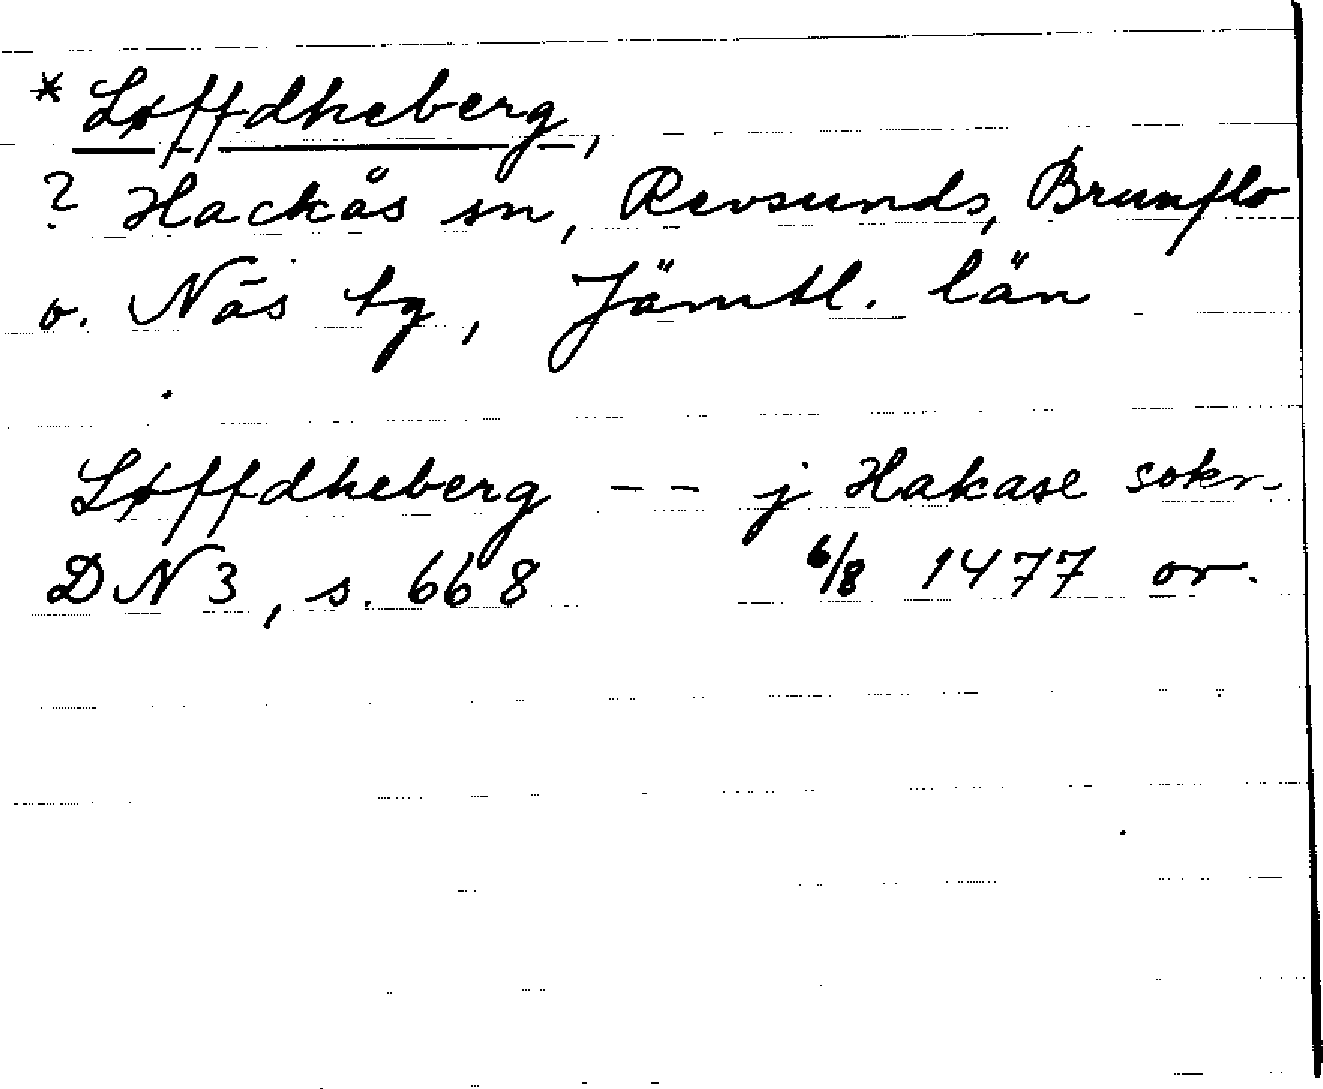 * Løffdheberg,
? Hackås sn, Revsunds, Brunflo
o. Näs tg, Jämtl. län
Løffdheberg -- j Hakase sokn
DN 3, s. 668 6/8 1477 or.